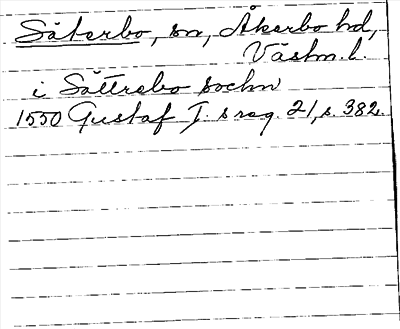 Säterbo, sn, Åkerbo hd,
Västm. l.
i Sättrabo sochn
1550 Gustaf I. s reg. 21, s. 382.